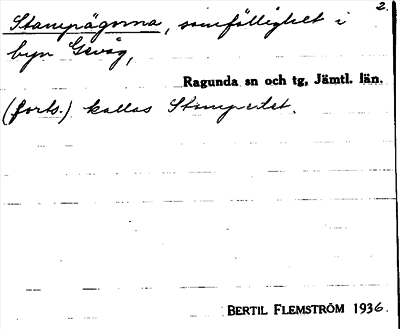 2.
Stampägorna, samfällighet i
byn Gevåg,
Ragunda sn och tg, Jämtl. län.
(forts.) kallas Stamparlet.
BERTIL FLEMSTRÖM 1936.